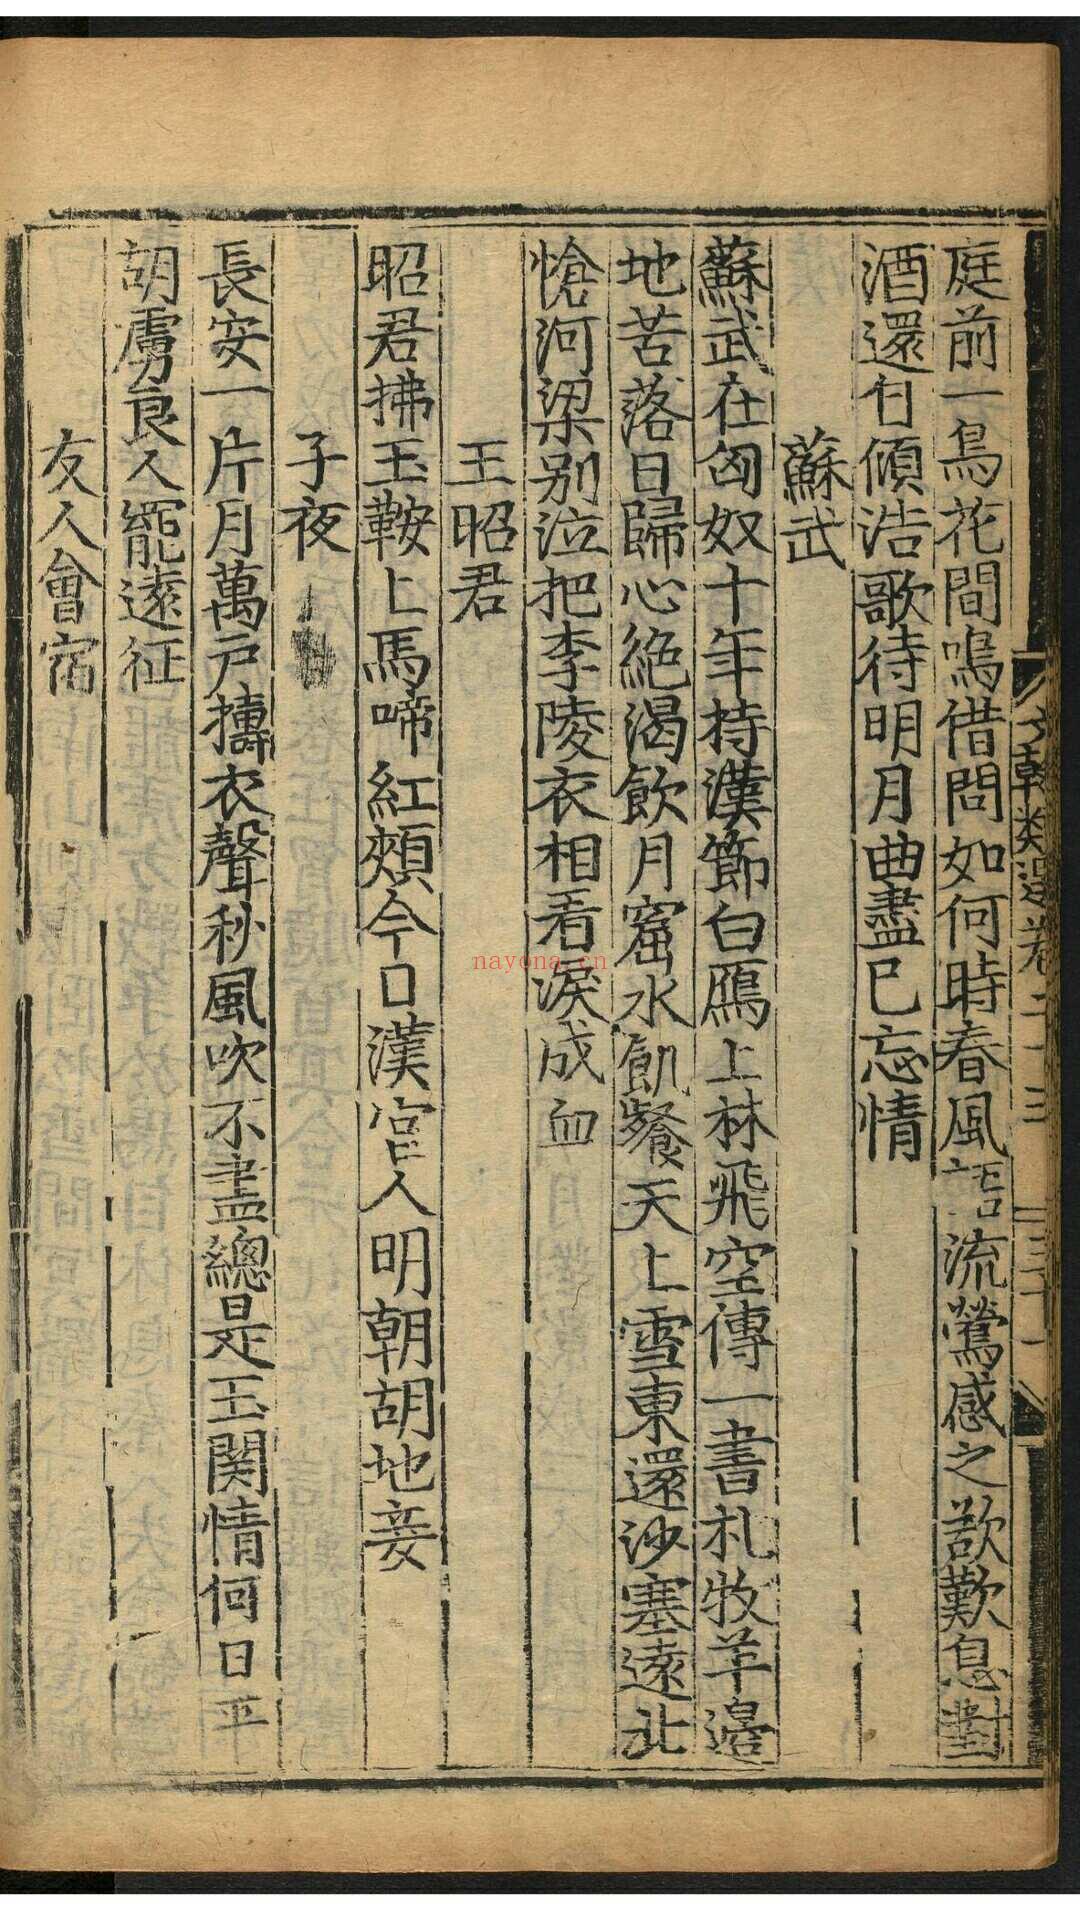 庭前一鳥花間鳴借問如何時春風語流鶯感之欲歎息對
酒還自傾浩歌待明月曲盡已忘情
蘇武
蘇武在匈奴十年持漢節白鴈上林飛空傳一書札牧羊邊
地苦落日歸心絶渴飲月窟水飢餐天上雪東還沙塞遠北
愴河梁別泣把李陵衣相看淚成血
王昭君
昭君拂玉鞍上馬啼紅頰今日漢宫人明朝胡地妾
子夜
長安一片月萬戸擣衣聲秋風吹不盡總是玉関情何日平
胡虜良人罷遠征
友人會宿
類選卷二十三
三十一
nayona.cn